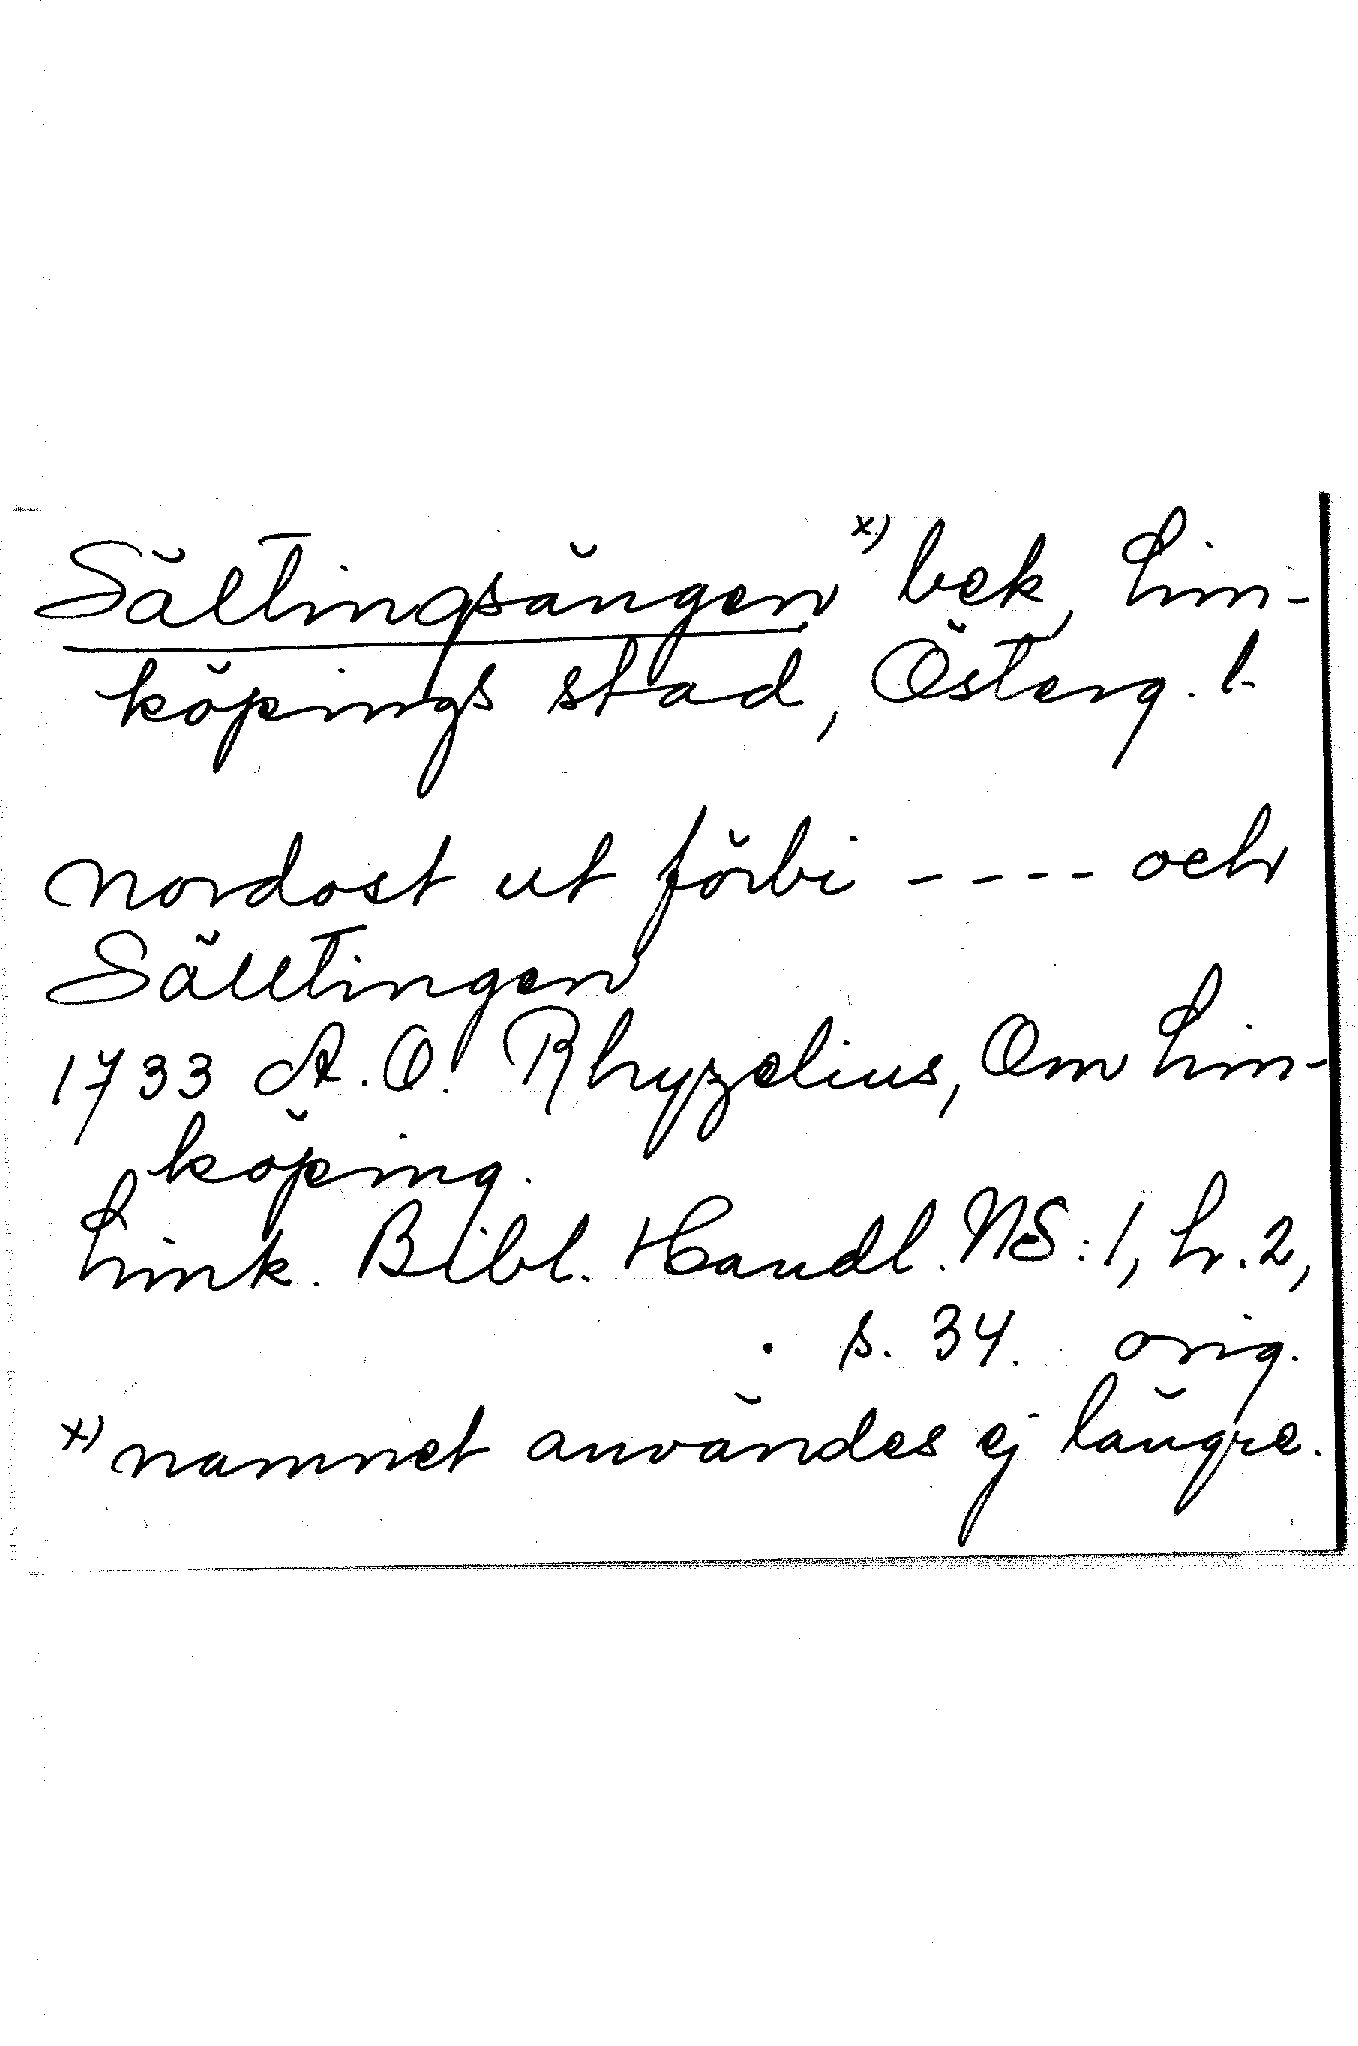 Sältingsängen x) bek, Lin-
köpings stad, Österg. l.
nordost ut förbi ---- och
Sälltingen
1733 A. O. Rhyzelius, Om Lin-
köping.
Link. Bibl. Handl. NS: 1, h. 2,
s. 34. orig.
x) namnet användes ej längre.